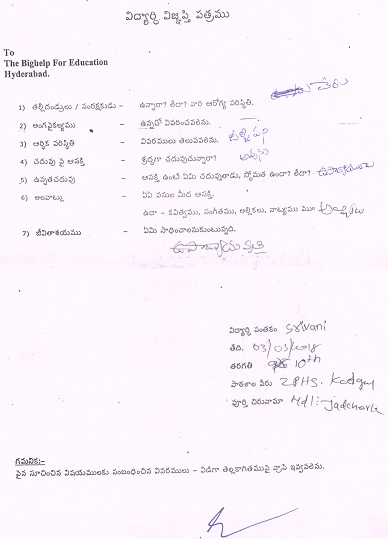 విద్యార్థి విజ్ఞప్తి పత్రము
To
The Bighelp For Education
Hyderabad.
1) తల్లిదండ్రులు / సంరక్షకుడు – ఉన్నారా? లేదా? వారి ఆరోగ్య పరిస్థితి.
2) అంగవైకల్యము – ఉన్నచో వివరించవలెను.
3) ఆర్థిక పరిస్థితి – వివరములు తెలుపవలెను.
4) చదువు పై ఆసక్తి – శ్రద్ధగా చదువుచున్నారా?
5) ఉన్నతచదువు – ఆసక్తి ఉంటే ఏమి చదువుతాడు, స్తోమత ఉందా? లేదా?
6) అలవాట్లు – ఏఏ పనుల మీద ఆసక్తి.
ఉదా – కవిత్వము, సంగీతము, అల్లికలు, నాట్యము
7) జీవితాశయము – ఏమి సాధించాలనుకుంటున్నది.
విద్యార్థి సంతకం Srivani
తేది. 03/03/2018
తరగతి 10th
పాఠశాల పేరు ZPHS.
పూర్తి చిరునామా Mdl:-
గమనిక:-
పైన సూచించిన విషయములకు సంబంధించిన వివరములు – విడిగా తెల్లకాగితముపై వ్రాసి ఇవ్వవలెను.